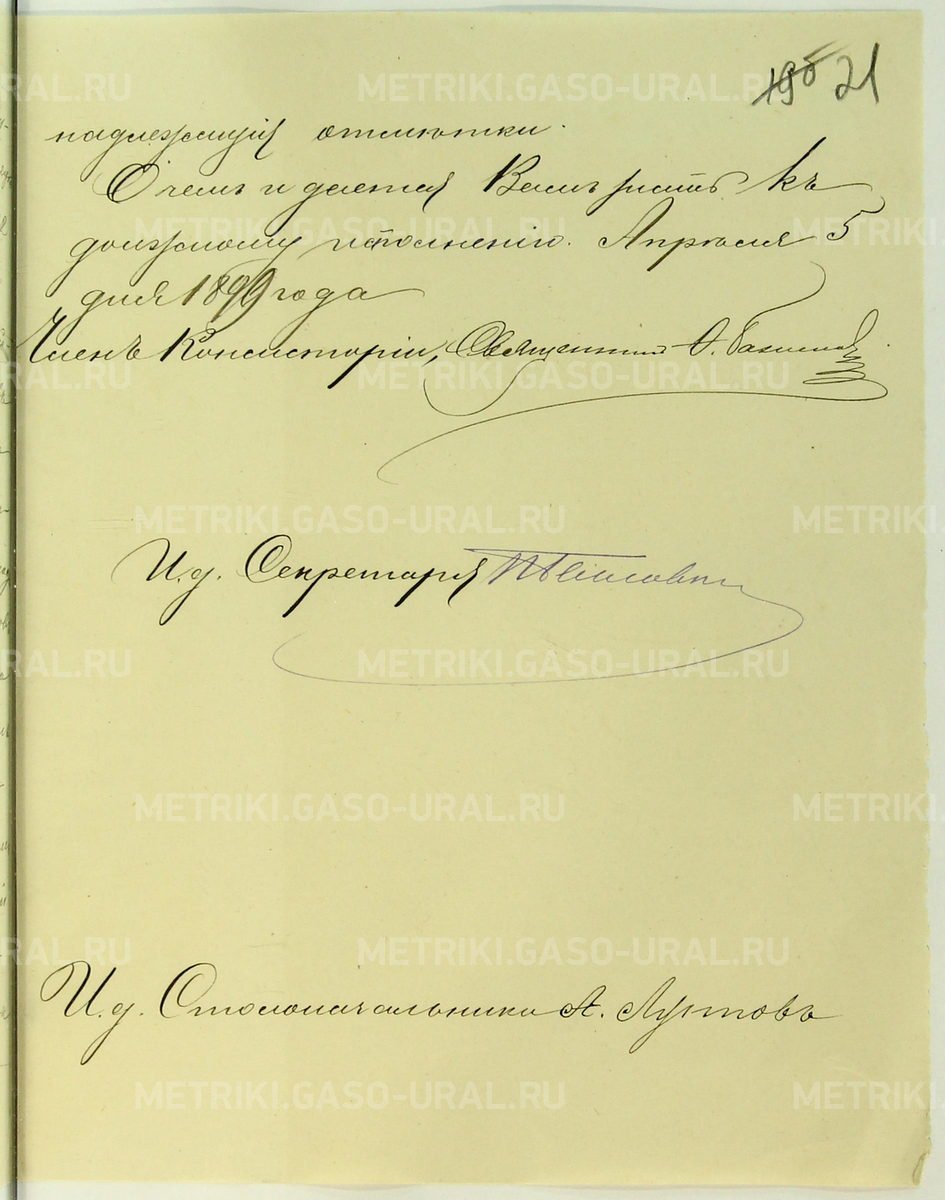 21
надлежащія отмѣтки.
О чемъ и дается Вамъ знать къ
должному исполненію. Апрѣля 5
дня 1899 года
Членъ Консисторіи, Священникъ
И. д. Секретаря
И. д. Столоначальника А. Лустовъ
METRIKI.GASO-URAL.RU